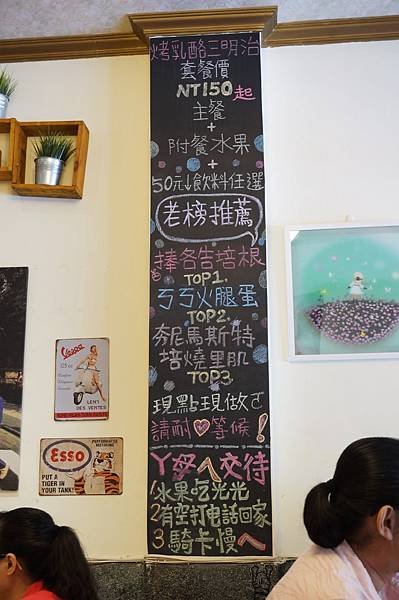 烤乳酪三明治
套餐價
NT150起
主餐
+
附餐水果
+
50元↓飲料任選
老榜推薦
捧各告培根
TOP1.
ㄎㄎ火腿蛋
TOP2.
夯尼馬斯特
培燒里肌
TOP3.
現點現做ㄛ
請耐♥等候!
ㄚ母ㄟ交待
1水果吃光光
2有空打電話回家
3騎卡慢ㄟ
Vespa
125 cc
LEN'S
DES VENTES
Esso
PERFORMANCE
MOTORING
PUT A
TIGER IN
YOUR TANK!